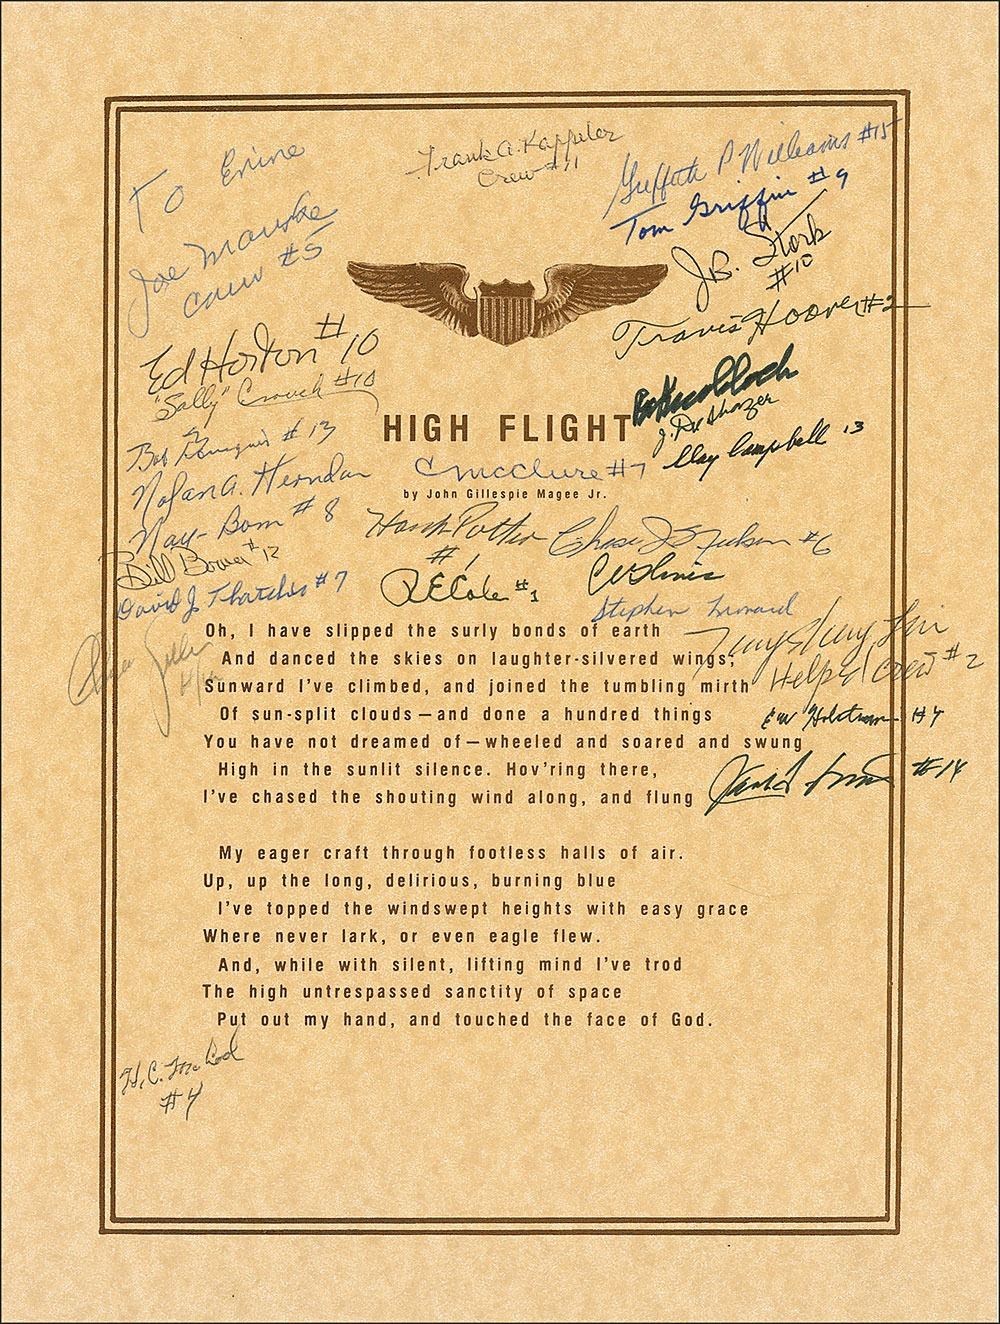 To Ernie
Frank A. Kappeler
Crew #11
Griffith P Williams #15
Tom Griffin #9
Joe Manske
crew #5
J.R. Stork
#10
Travis Hoover #2
Ed Horton #10
"Sally" Crouch #10
HIGH FLIGHT
J. DeShazer
Clay Campbell 13
Bob Bourgeois #13
C McClure #7
by John Gillespie Magee Jr.
Nolan A. Herndon
#8
Hank Potter
#1
Chase J #6
Bill Bower #12
R E Cole #1
David J Thatcher #7
Stephen
Oh, I have slipped the surly bonds of earth
And danced the skies on laughter-silvered wings;
Tung Sheng Liu
Helped Crew #2
Sunward I've climbed, and joined the tumbling mirth
Of sun-split clouds—and done a hundred things
EW Holstrom #4
You have not dreamed of—wheeled and soared and swung
High in the sunlit silence. Hov'ring there,
#14
I've chased the shouting wind along, and flung
My eager craft through footless halls of air.
Up, up the long, delirious, burning blue
I've topped the windswept heights with easy grace
Where never lark, or even eagle flew.
And, while with silent, lifting mind I've trod
The high untrespassed sanctity of space
Put out my hand, and touched the face of God.
H.C. McCool
#4